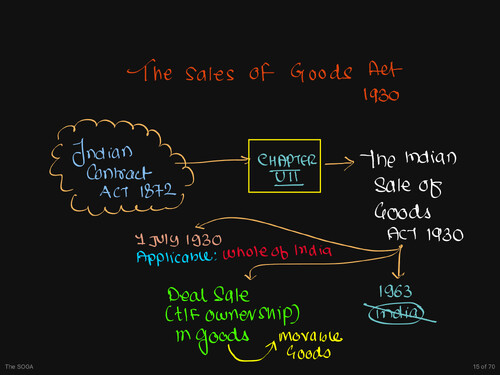 The Sales of Goods Act
1930
Indian
Contract
ACT 1872
CHAPTER
VII
The Indian
Sale of
Goods
ACT 1930
1 July 1930
Applicable: whole of India
Deal Sale
(t/f ownership)
in goods
movable
Goods
1963
India
The SOGA
15 of 70